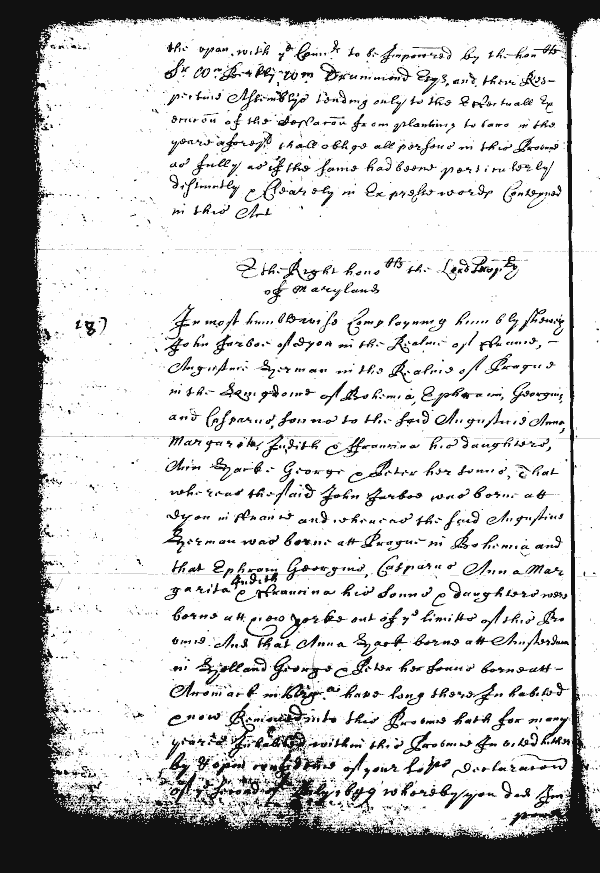 the upon with ye Comrs to be Impowred by the honble
Sr Wm Berkly, Wm Drummond Esqs, and their Res-
pective Assemblys tending only to the Effectuall Ex
ecucon of the Cessacon from planting to bacco in the
yeare aforesd shall oblige all persons in this Province
as fully as if the same had beene perticulerly
distinctly & Clearely in Expresse words Conteyned
in this Act
To the Right honoble the Lord Propry
of Maryland
In most humble wise Complayning humbly sheweth
John Jarboe of Dyon in the Realme of ffrance, -
Augustine Herman in the Realme of Prague
in the Kingdome of Bohemia, Ephraim, Georgius,
and Casparus, sonns to the said Augustine Anna,
Margarita, Judith & ffrancina his daughters,
Ann Hacke George & Peter her sonns, That
whereas the said John Jarboe was borne att
Dyon in ffrance and whereas the said Augustine
Herman was borne att Prague in Bohemia and
that Ephraim Georgius, Casparus Anna Mar
garita Judith & ffrancina his sonns & daughters were
borne att new Yorke out of ye limitts of this Pro
vince. And that Anna Hack borne att Amsterdam
in Holland George & Peter her sonns borne att -
Accomack in Virga have long there Inhabited
& now Removed into this Province hath for many
yeares Inhabited within this Province Invited hither
by & upon confidence of your Lopps Declaracon
of ye second of July 1649 whereby you did Im
power
187)